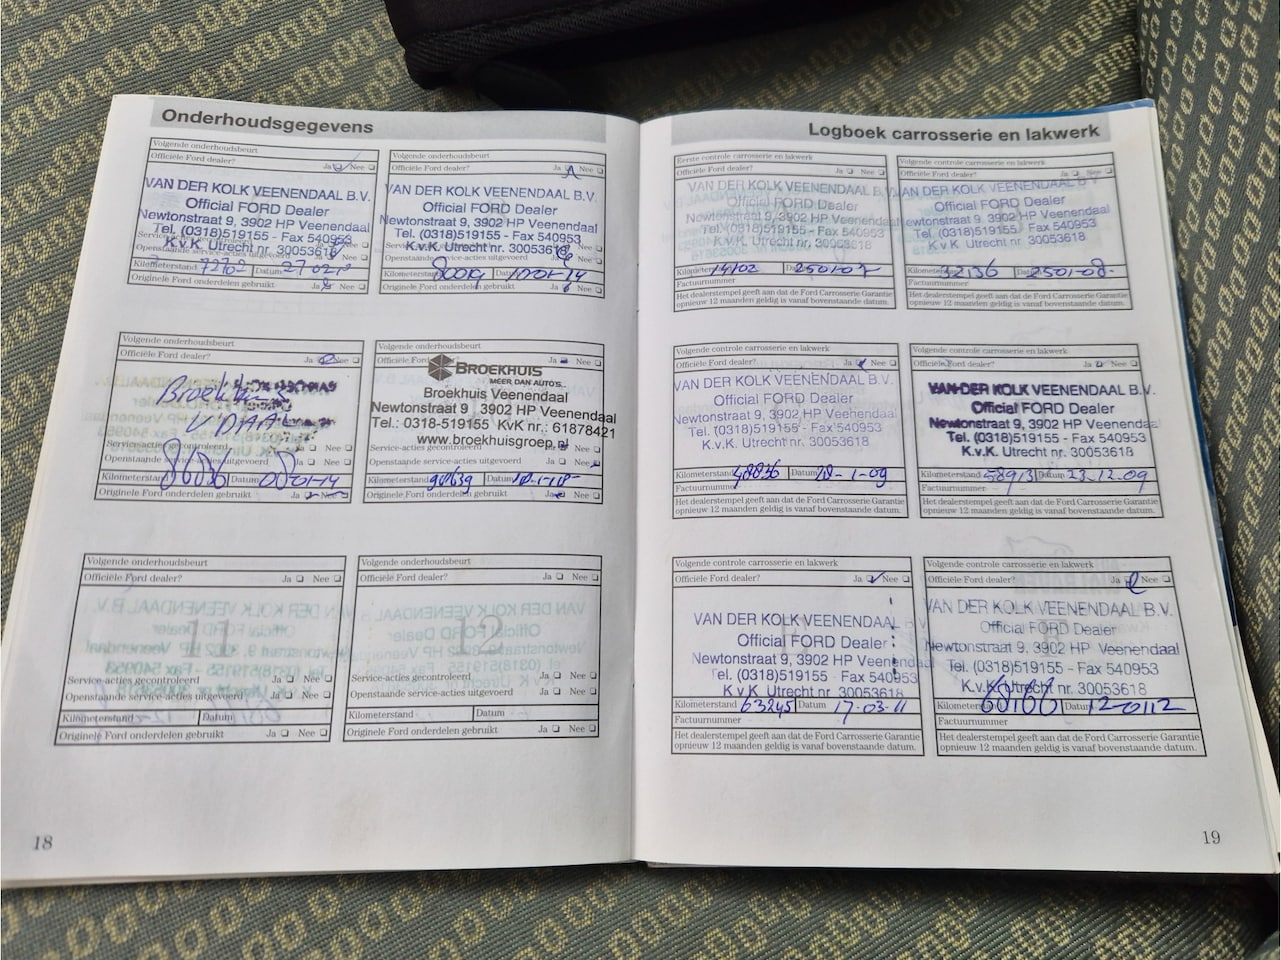 Onderhoudsgegevens
Volgende onderhoudsbeurt
Officiële Ford dealer? Ja Nee
VAN DER KOLK VEENENDAAL B.V.
Official FORD Dealer
Newtonstraat 9, 3902 HP Veenendaal
Tel. (0318)519155 - Fax 540953
K.v.K. Utrecht nr. 30053618
Openstaande service-acties uitgevoerd
Kilometerstand 72762 Datum
Originele Ford onderdelen gebruikt Ja Nee
Volgende onderhoudsbeurt
Officiële Ford dealer? Ja Nee
VAN DER KOLK VEENENDAAL B.V.
Official FORD Dealer
Newtonstraat 9, 3902 HP Veenendaal
Tel. (0318)519155 - Fax 540953
K.v.K. Utrecht nr. 30053618
Openstaande service-acties uitgevoerd
Kilometerstand Datum
Originele Ford onderdelen gebruikt Ja Nee
Volgende onderhoudsbeurt
Officiële Ford dealer? Ja Nee
Service-acties gecontroleerd
Openstaande service-acties uitgevoerd
Kilometerstand 86836 Datum 08-01-14
Originele Ford onderdelen gebruikt Ja Nee
Volgende onderhoudsbeurt
Officiële Ford dealer? Ja Nee
BROEKHUIS
MEER DAN AUTO'S...
Broekhuis Veenendaal
Newtonstraat 9 3902 HP Veenendaal
Tel.: 0318-519155 KvK nr.: 61878421
www.broekhuisgroep.nl
Service-acties gecontroleerd
Openstaande service-acties uitgevoerd
Kilometerstand Datum
Originele Ford onderdelen gebruikt Ja Nee
Volgende onderhoudsbeurt
Officiële Ford dealer? Ja Nee
11
Service-acties gecontroleerd Ja Nee
Openstaande service-acties uitgevoerd Ja Nee
Kilometerstand Datum
Originele Ford onderdelen gebruikt Ja Nee
Volgende onderhoudsbeurt
Officiële Ford dealer? Ja Nee
12
Service-acties gecontroleerd Ja Nee
Openstaande service-acties uitgevoerd Ja Nee
Kilometerstand Datum
Originele Ford onderdelen gebruikt Ja Nee
18
Logboek carrosserie en lakwerk
Eerste controle carrosserie en lakwerk
Officiële Ford dealer? Ja Nee
VAN DER KOLK VEENENDAAL B.V.
Official FORD Dealer
Newtonstraat 9, 3902 HP Veenendaal
Tel. (0318)519155 - Fax 540953
K.v.K. Utrecht nr. 30053618
Kilometerstand 14102 Datum 250107
Factuurnummer
Het dealerstempel geeft aan dat de Ford Carrosserie Garantie
opnieuw 12 maanden geldig is vanaf bovenstaande datum.
Volgende controle carrosserie en lakwerk
Officiële Ford dealer? Ja Nee
VAN DER KOLK VEENENDAAL B.V.
Official FORD Dealer
Newtonstraat 9, 3902 HP Veenendaal
Tel. (0318)519155 - Fax 540953
K.v.K. Utrecht nr. 30053618
Kilometerstand 32136 Datum 250108-
Factuurnummer
Het dealerstempel geeft aan dat de Ford Carrosserie Garantie
opnieuw 12 maanden geldig is vanaf bovenstaande datum.
Volgende controle carrosserie en lakwerk
Officiële Ford dealer? Ja Nee
VAN DER KOLK VEENENDAAL B.V.
Official FORD Dealer
Newtonstraat 9, 3902 HP Veenendaal
Tel. (0318)519155 - Fax 540953
K.v.K. Utrecht nr. 30053618
Kilometerstand 48836 Datum
Factuurnummer
Het dealerstempel geeft aan dat de Ford Carrosserie Garantie
opnieuw 12 maanden geldig is vanaf bovenstaande datum.
Volgende controle carrosserie en lakwerk
Officiële Ford dealer? Ja Nee
VAN DER KOLK VEENENDAAL B.V.
Official FORD Dealer
Newtonstraat 9, 3902 HP Veenendaal
Tel. (0318)519155 - Fax 540953
K.v.K. Utrecht nr. 30053618
Kilometerstand 58913 Datum 23.12.09
Factuurnummer
Het dealerstempel geeft aan dat de Ford Carrosserie Garantie
opnieuw 12 maanden geldig is vanaf bovenstaande datum.
Volgende controle carrosserie en lakwerk
Officiële Ford dealer? Ja Nee
VAN DER KOLK VEENENDAAL
Official FORD Dealer
Newtonstraat 9, 3902 HP Veenendaal
Tel. (0318)519155 - Fax 540953
K.v.K. Utrecht nr. 30053618
Kilometerstand 63245 Datum 17-03-11
Factuurnummer
Het dealerstempel geeft aan dat de Ford Carrosserie Garantie
opnieuw 12 maanden geldig is vanaf bovenstaande datum.
Volgende controle carrosserie en lakwerk
Officiële Ford dealer? Ja Nee
VAN DER KOLK VEENENDAAL B.V.
Official FORD Dealer
Newtonstraat 9, 3902 HP Veenendaal
Tel. (0318)519155 - Fax 540953
K.v.K. Utrecht nr. 30053618
Kilometerstand 68166 Datum 12-0112
Factuurnummer
Het dealerstempel geeft aan dat de Ford Carrosserie Garantie
opnieuw 12 maanden geldig is vanaf bovenstaande datum.
19